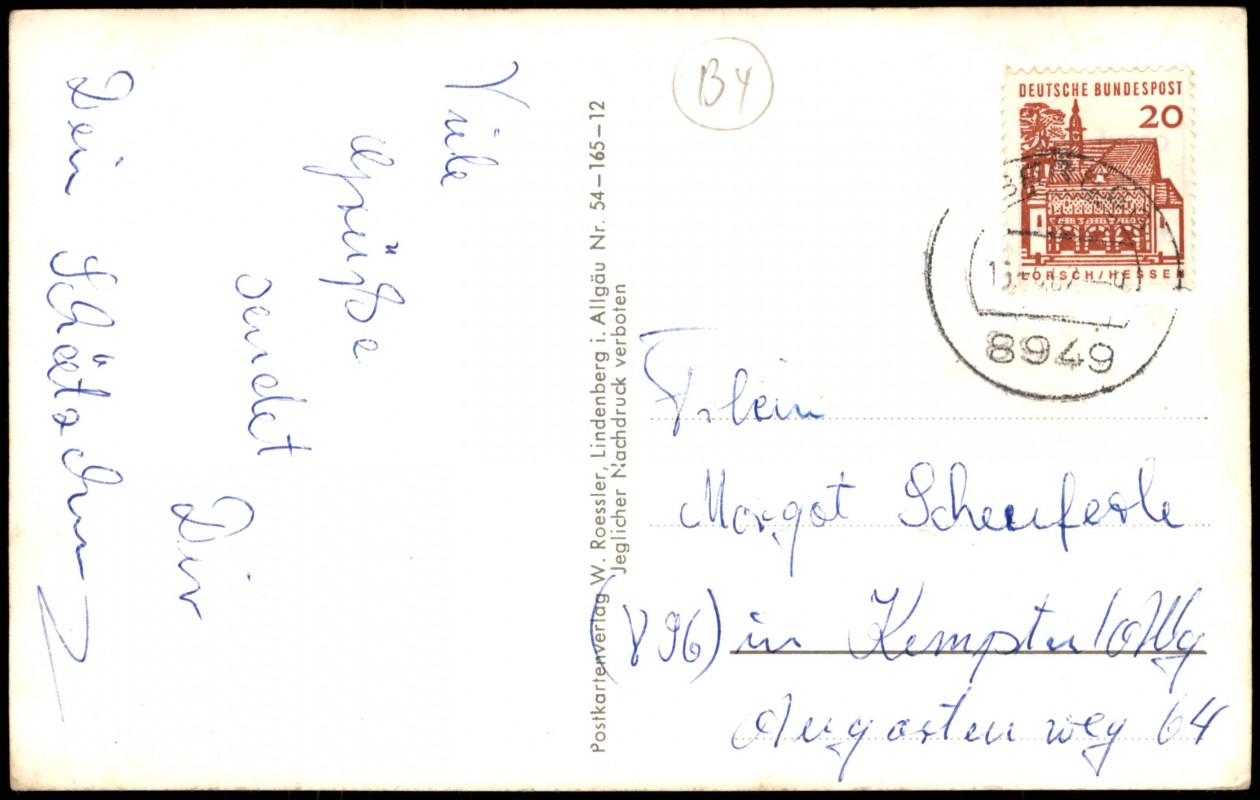 Viele
Grüße
sendet
Dir
Dein Schätzchen
Postkartenverlag W. Roessler, Lindenberg i. Allgäu Nr. 54–165–12
Jeglicher Nachdruck verboten
B4
DEUTSCHE BUNDESPOST
20
LORSCH/HESSEN
8949
Margot Scheuferle
(896) in Kempten/Allg
Augartenweg 64